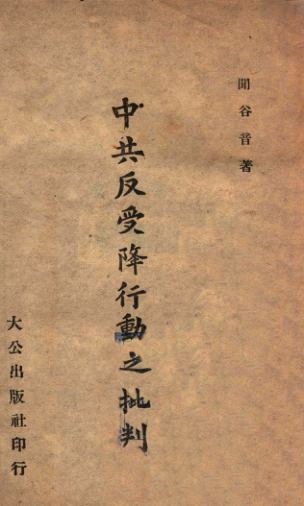 聞谷音著
中共反受降行動之批判
大公出版社印行